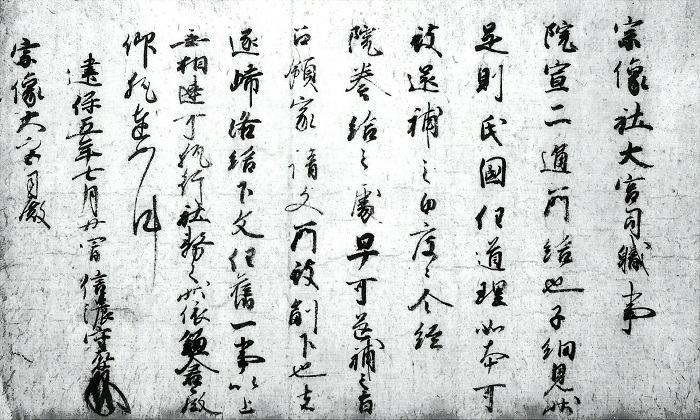 宗像社大宮司職事
院宣二通所給也子細見状
是則氏國任道理如本可
被還補之由度々令経
院奏給之處早可還補之旨
召預家請文所被剋下也
遂帰洛給下文任舊一事以上
無相違可執行社務之状依鎌倉殿
仰執達如件
建保五年七月廿四日信濃守
宗像大宮司殿